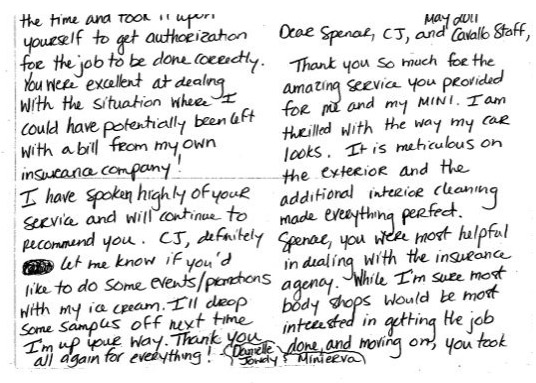 May 2011
Dear Spencer, CJ, and Cavallo Staff,
Thank you so much for the
amazing service you provided
for me and my MINI. I am
thrilled with the way my car
looks. It is meticulous on
the exterior and the
additional interior cleaning
made everything perfect.
Spencer, you were most helpful
in dealing with the insurance
agency. While I'm sure most
body shops would be most
interested in getting the job
done, and moving on, you took
the time and took it upon
yourself to get authorization
for the job to be done correctly.
You were excellent at dealing
with the situation where I
could have potentially been left
with a bill from my own
insurance company!
I have spoken highly of your
service and will continue to
recommend you. CJ, definitely
let me know if you'd
like to do some events/promotions
with my ice cream. I'll drop
some samples off next time
I'm up your way. Thank you
all again for everything!
Danielle
Jowdy & Minierva